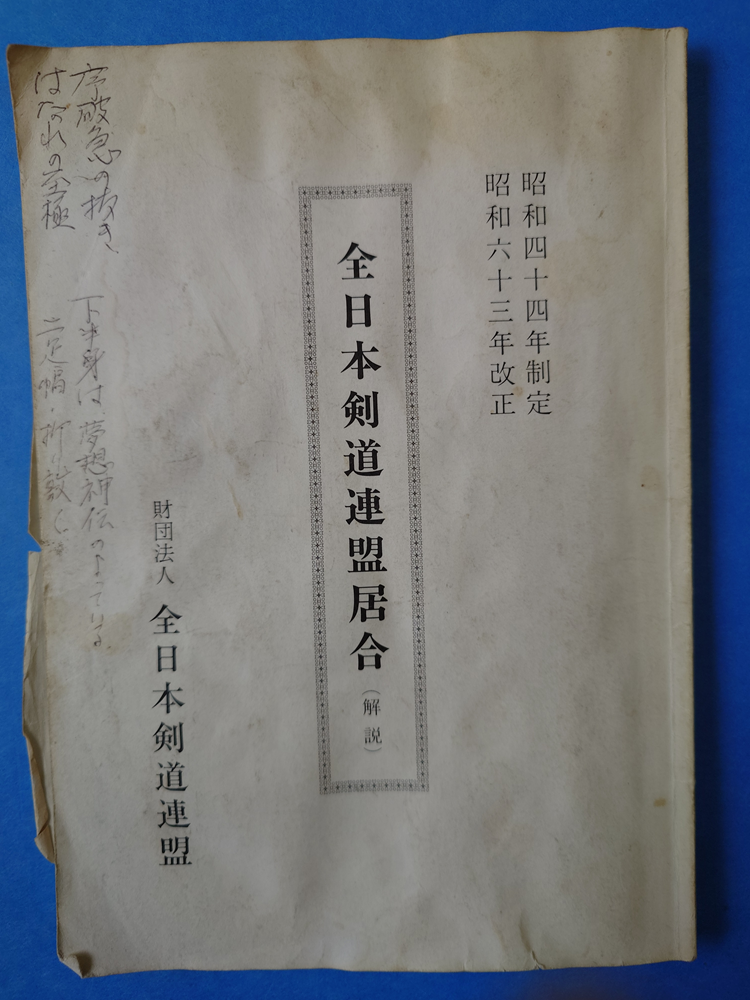 昭和四十四年制定
昭和六十三年改正
全日本剣道連盟居合（解説）
財団法人 全日本剣道連盟
序破急の抜き、
はなれの至極
下半身は、夢想神伝の
二足幅・折敷く